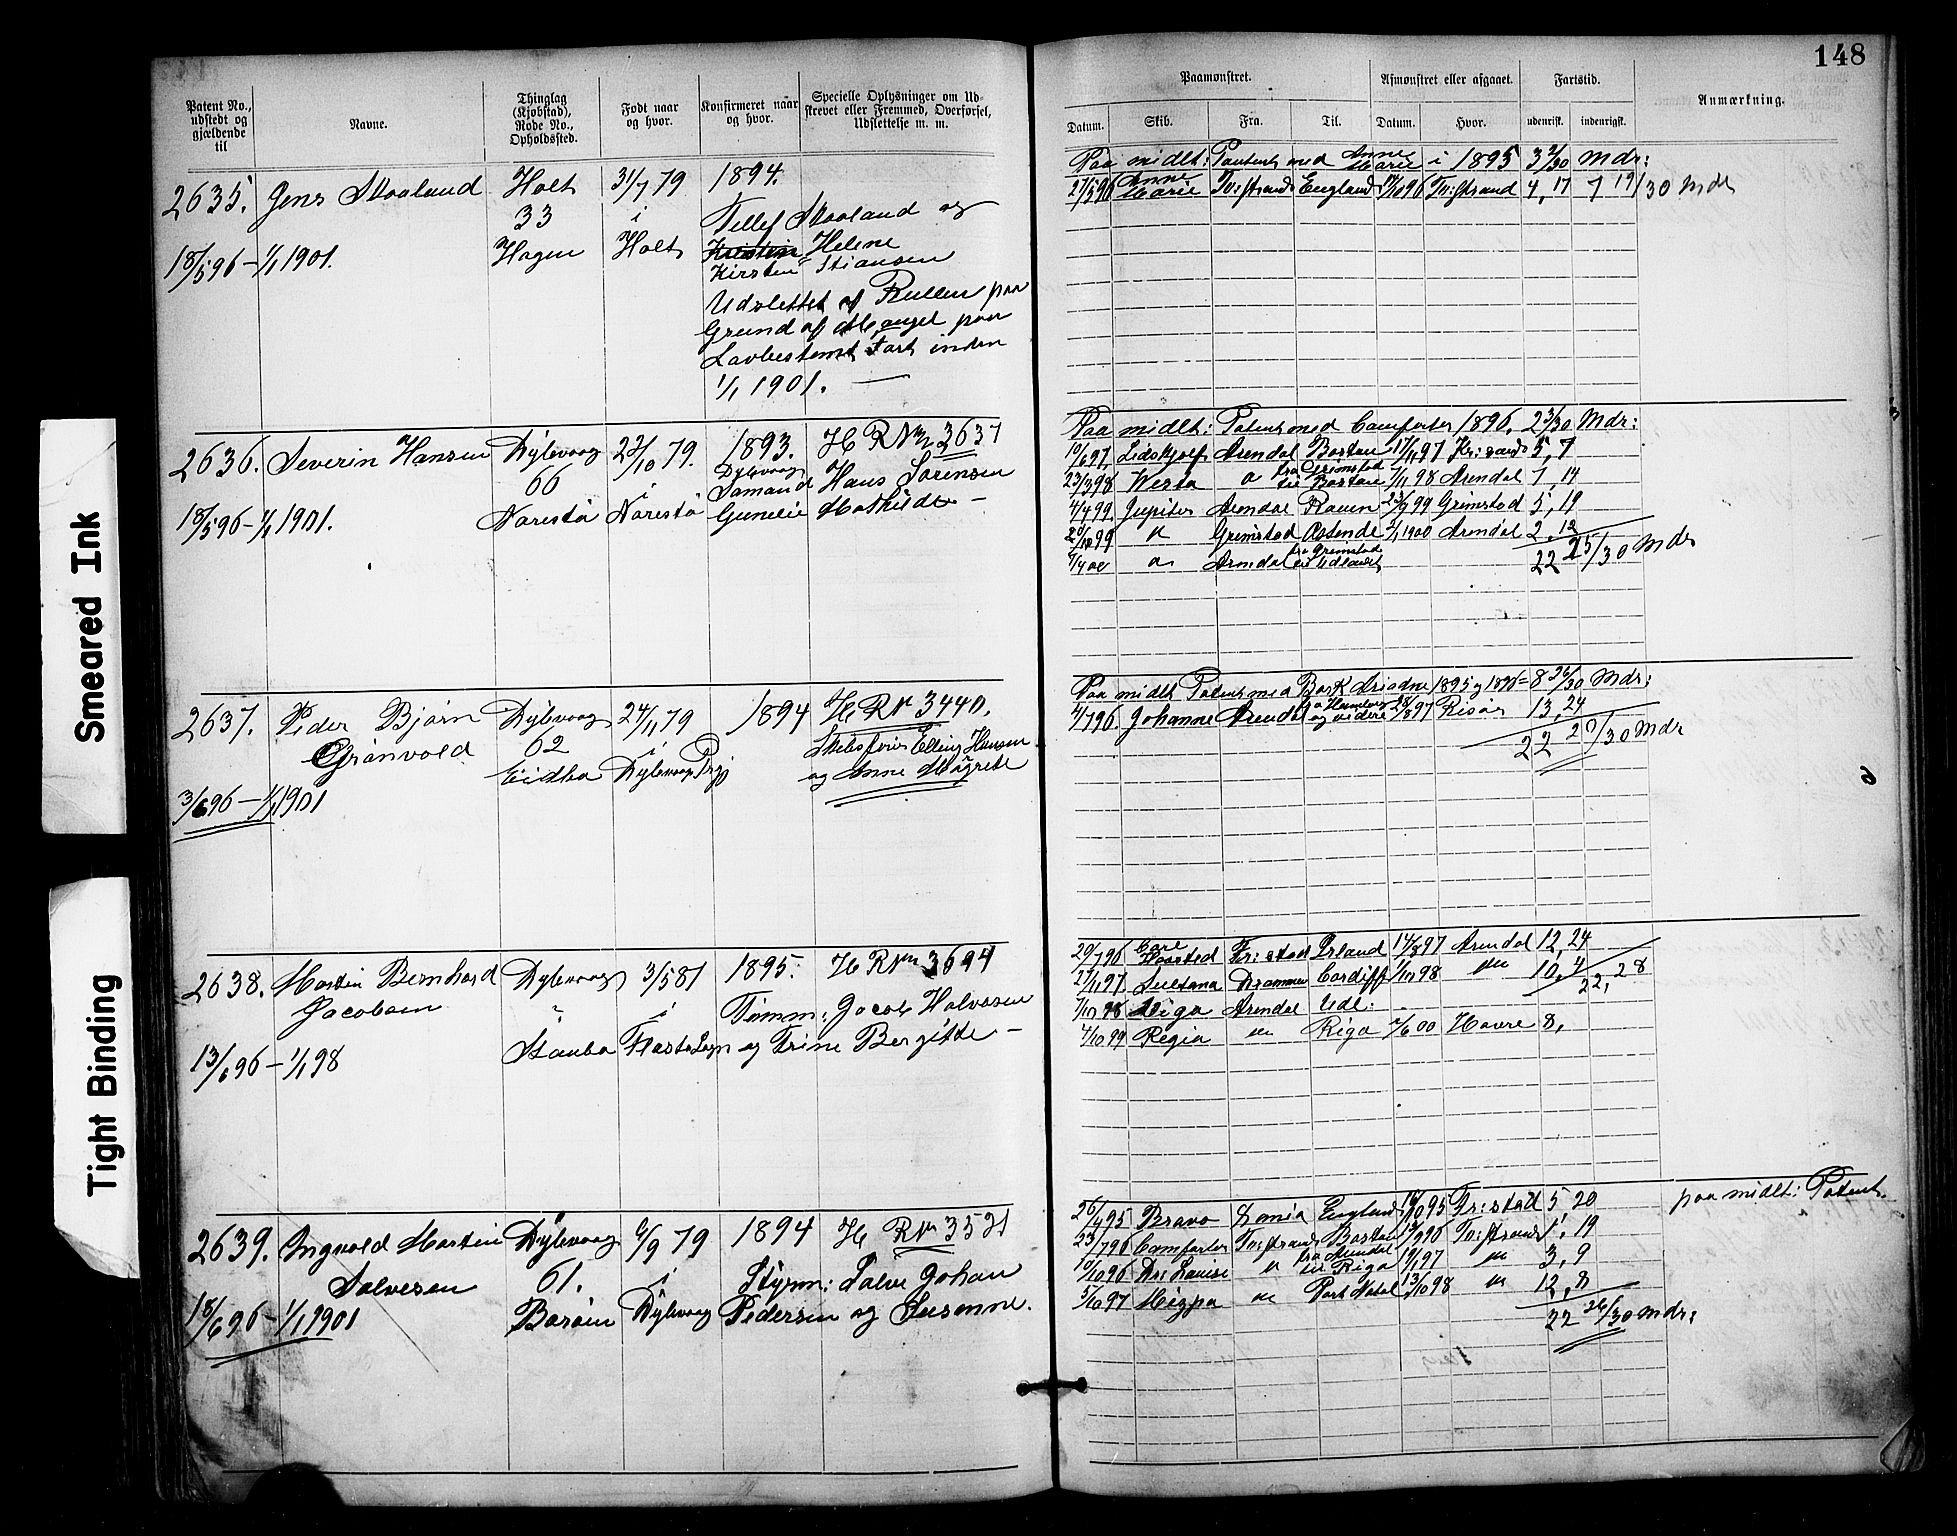 148
Patent No., udstedt og gjældende til
Navne.
Thinglag (Kjøbstad), Rode No., Opholdssted.
Født naar og hvor.
Konfirmeret naar og hvor.
Specielle Oplysninger om Udstrevet eller Fremmed, Overførsel, Udslettelse m. m.
Paamønstret.
Afmønstret eller afgaaet.
Fartstid.
Anmærkning.
Datum. Skib. Fra. Til. Datum. Hvor. udenrigst. indenrigst.
2635. Jens Skaaland Holt 31/7 79 1894.
33 i Tellef Skaaland og
18/5 96 – 1/1 1901. Hagen Holt Kirstin Helene
Kirsten Stiansen
Udslettet af Rullen paa
Grund af Mangel paa
Lovbestemt Fart inden
1/1 1901. —
Paa midlt: Patent med Anne Marie i 1895 3 2/30 Mdr:
27/5 96 Anne Marie Tv:strand England 14/10 96 Tv:strand 4, 17 7 19/30 Mdr
2636. Severin Hansen Dybvaag 22/10 79. 1893. H R Nr 3637
66 i Dybvaag Sømand Hans Sørensen
18/5 96 – 1/1 1901. Narestø Narestø Gunelie Mathilde –
Paa midlt: Patent med Comforter 1896. 2 3/30 Mdr:
10/6 97 Lidskjalf Arendal Boston 17/11 97 Kr:sand 5, 7
23/3 98 Westa " fra Grimstad til Boston 7/11 98 Arendal 7, 14
4/4 99. Jupiter Arendal Rouen 23/9 99 Grimstad 5, 19
20/10 99 " Grimstad Ostende 2/1 1900 Arendal 2, 12
7/4 00 " Arendal fra Grimstad til Udlandet 22 25/30 Mdr
2637. Peder Bjørn Dybvaag 24/1 79 1894 H R Nr 3440.
Grønvold 62 i Skibsfører Elling Hansen
Eidbo Dybvaag Prgj og Anne Margrete
3/6 96 – 1/1 1901
Paa midlt Patent med Bark Ariadne 1895 og 1896 = 8 26/30 Mdr:
4/7 96. Johanne Arendal Hamburg og videre 28/8 97 Risør 13, 24
22 20/30 Mdr
2638. Martin Bernhard Dybvaag 3/5 81 1895. H R Nr 3694
Jacobsen " i Tømm: Jacob Halvorsen
13/6 96 – 1/1 98 Staubo Flosta Sogn og Trine Bergitte –
20/7 96 Core Haasted Fr:stad Irland 14/8 97 Arendal 12, 24
27/11 97. Sultana Drammen Cardiff 1/10 98 " 10, 4
22, 28
7/10 98 Riga Arendal Udl:
4/10 99 Regia " Riga 2/6 00 Havre 8,
2639. Ingvald Martin Dybvaag 6/9 79 1894 H R Nr 3521
Salvesen 61. i Stymn: Salve Johan
18/6 96 – 1/1 1901 Borøen Dybvaag Pedersen og Susanne.
26/4 95 Bravo Xania England 16/10 95 Fr:stad 5 20 paa midlt: Patent.
23/7 96 Comforter Tv:strand Boston 12/9 96 Tv:strand 1, 19
10/10 96 Dr: Louise " fra Arendal til Riga 19/1 97 " 3, 9
5/10 97 Mizpa " Port Natal 13/10 98 " 12, 8
22 26/30 Mdr:
Smeared Ink
Tight Binding